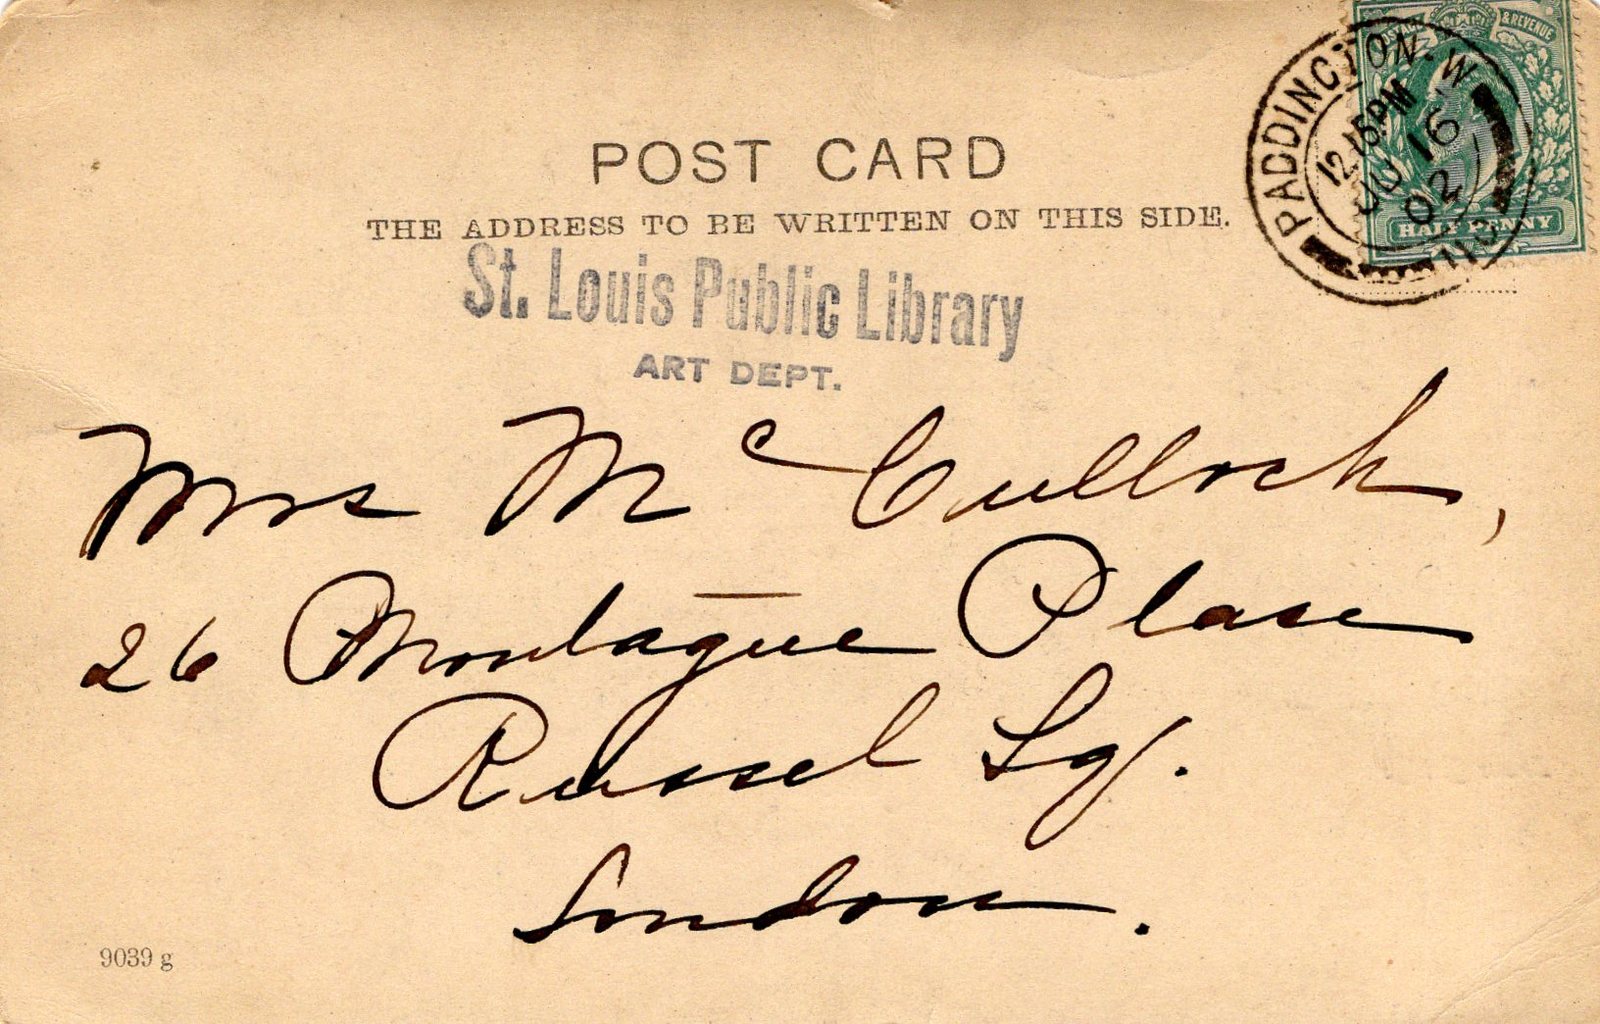 POSTAGE & REVENUE
PADDINGTON. W
12.15PM
JU 16
02
HALF PENNY
POST CARD
THE ADDRESS TO BE WRITTEN ON THIS SIDE.
St. Louis Public Library
ART DEPT.
Mrs McCulloch,
26 Montague Place
Russel Sq.
London.
9039 g